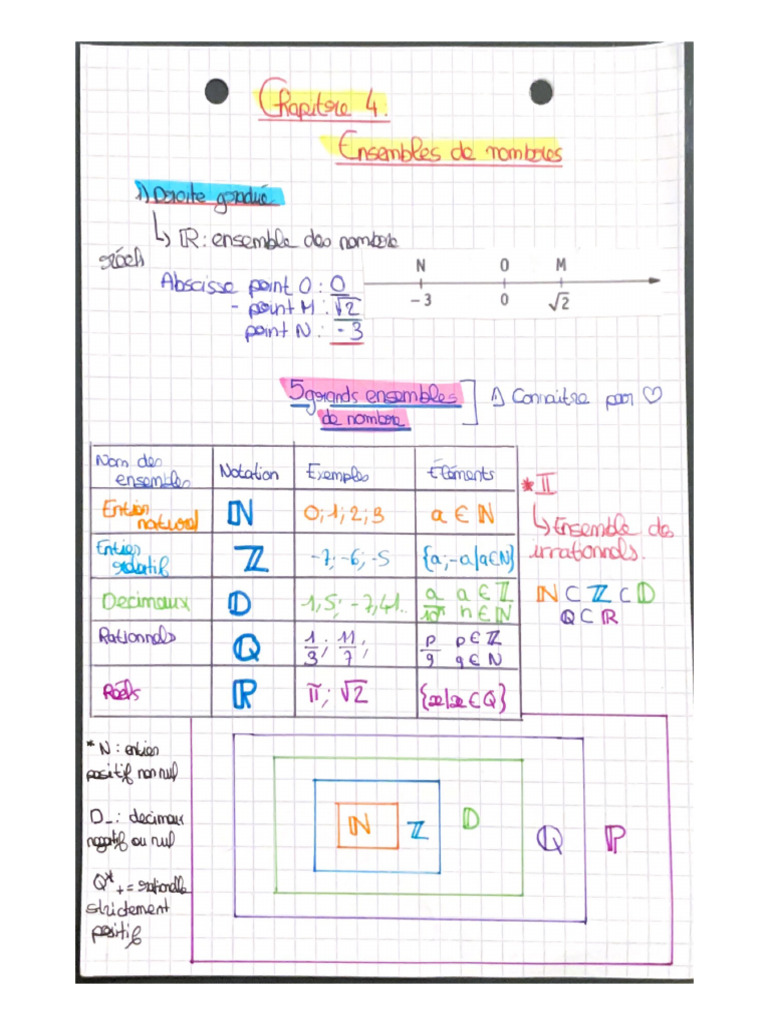 Chapitre 4.
Ensembles de nombres
1) Droite gradué
↳ ℝ : ensemble des nombre
réels
Abscisse point O : 0
- point M : √2
point N : - 3
N O M
-3 0 √2
5 grands ensembles
de nombre
1) Connaitre par ♡
Nom des ensembles Notation Exemples Éléments
Entier naturel ℕ 0; 1; 2; 3 a ∈ ℕ
Entier relatif ℤ -7; -6; -5 {a; -a | a ∈ ℕ}
Decimaux 𝔻 1,5; -7,41.. a/10ⁿ a ∈ ℤ n ∈ ℕ
Rationnels ℚ 1/3; 11/7; p/q p ∈ ℤ q ∈ ℕ
Réels ℝ π; √2 {x | x ∈ ℚ}
* 𝕀
↳ Ensemble des
irrationnels.
ℕ ⊂ ℤ ⊂ 𝔻
ℚ ⊂ ℝ
* N : entier
positif non nul
D_ : decimaux
negatif ou nul
Q*+ = rationelle
strictement
positif
ℕ ℤ 𝔻 ℚ ℝ